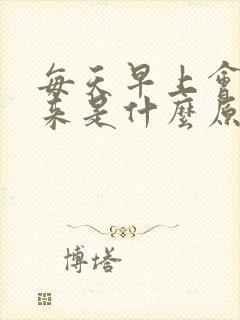 每天早上會
來是什麼原
博塔